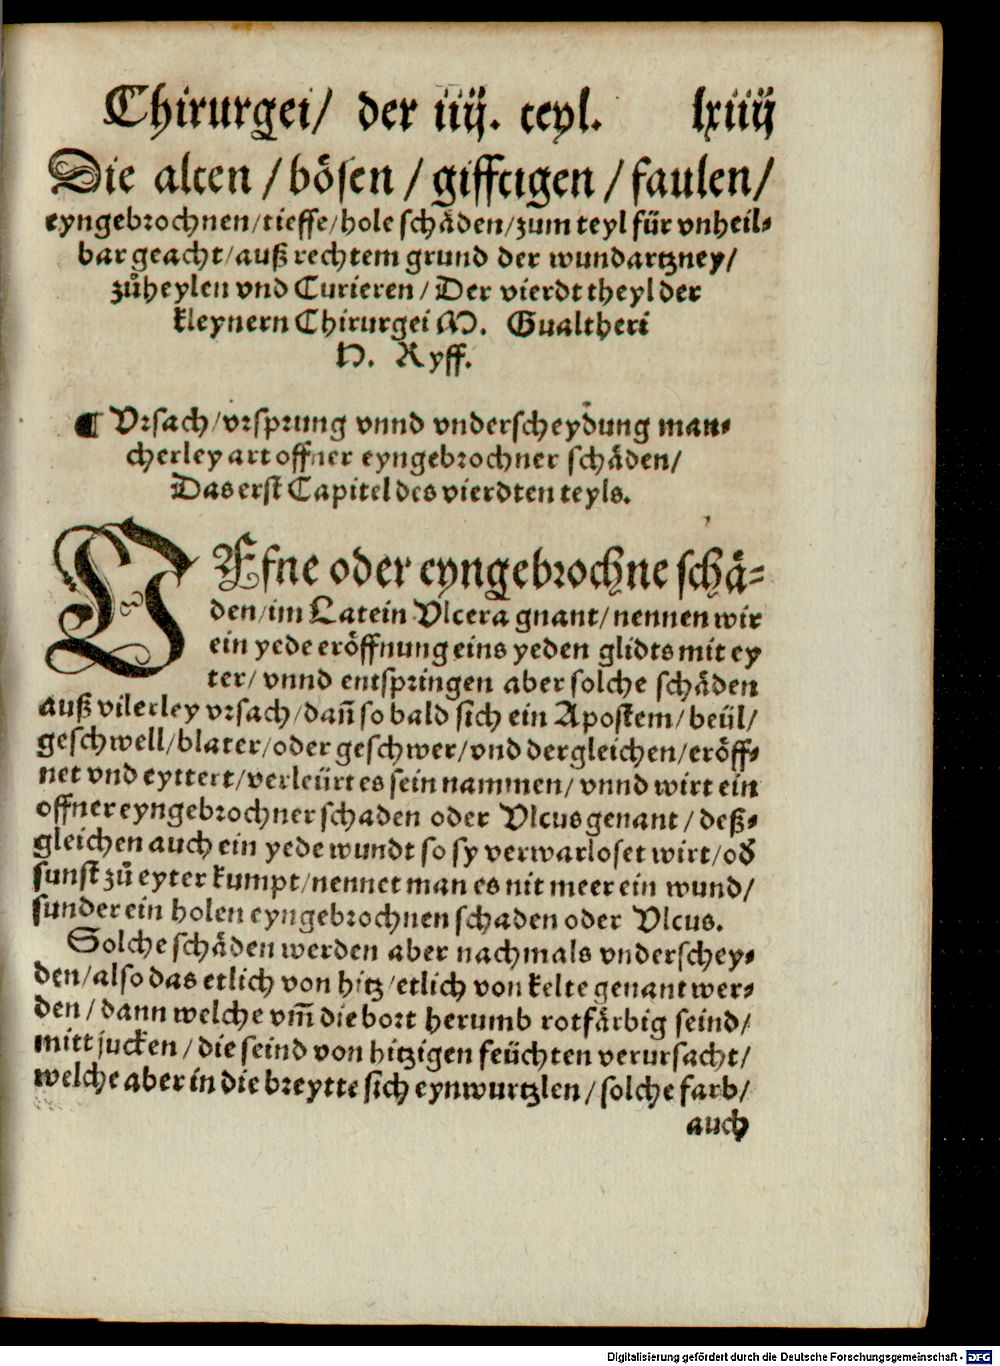 Chirurgei/ der iiij. teyl. lxiiij
Die alten/bösen/gifftigen/faulen/
eyngebrochnen/tieffe/hole schäden/zum teyl für vnheil⸗
bar geacht/auß rechtem grund der wundartzney/
zůheylen vnd Curieren/Der vierdt theyl der
kleynern Chirurgei M. Gualtheri
H. Ryff.
¶ Vrsach/vrsprung vnnd vnderscheydung man⸗
cherley art offner eyngebrochner schäden/
Das erst Capitel des vierdten teyls.
OFfne oder eyngebrochne schä⸗
den/im Latein Vlcera gnant/nennen wir
ein yede eröffnung eins yeden glidts mit ey
ter/vnnd entspringen aber solche schäden
auß vilerley vrsach/dañ so bald sich ein Apostem/beül/
geschwell/blater/oder geschwer/vnd dergleichen/eröff⸗
net vnd eyttert/verleürt es sein nammen/vnnd wirt ein
offner eyngebrochner schaden oder Vlcus genant/deß⸗
gleichen auch ein yede wundt so sy verwarloset wirt/oď
sunst zů eyter kumpt/nennet man es nit meer ein wund/
sunder ein holen eyngebrochnen schaden oder Vlcus.
Solche schäden werden aber nachmals vnderschey⸗
den/also das etlich von hitz/etlich von kelte genant wer⸗
den/dann welche vm̃ die bort herumb rotfärbig seind/
mitt jucken/die seind von hitzigen feüchten verursacht/
welche aber in die breytte sich eynwurtzlen/solche farb/
auch
Digitalisierung gefördert durch die Deutsche Forschungsgemeinschaft - DFG